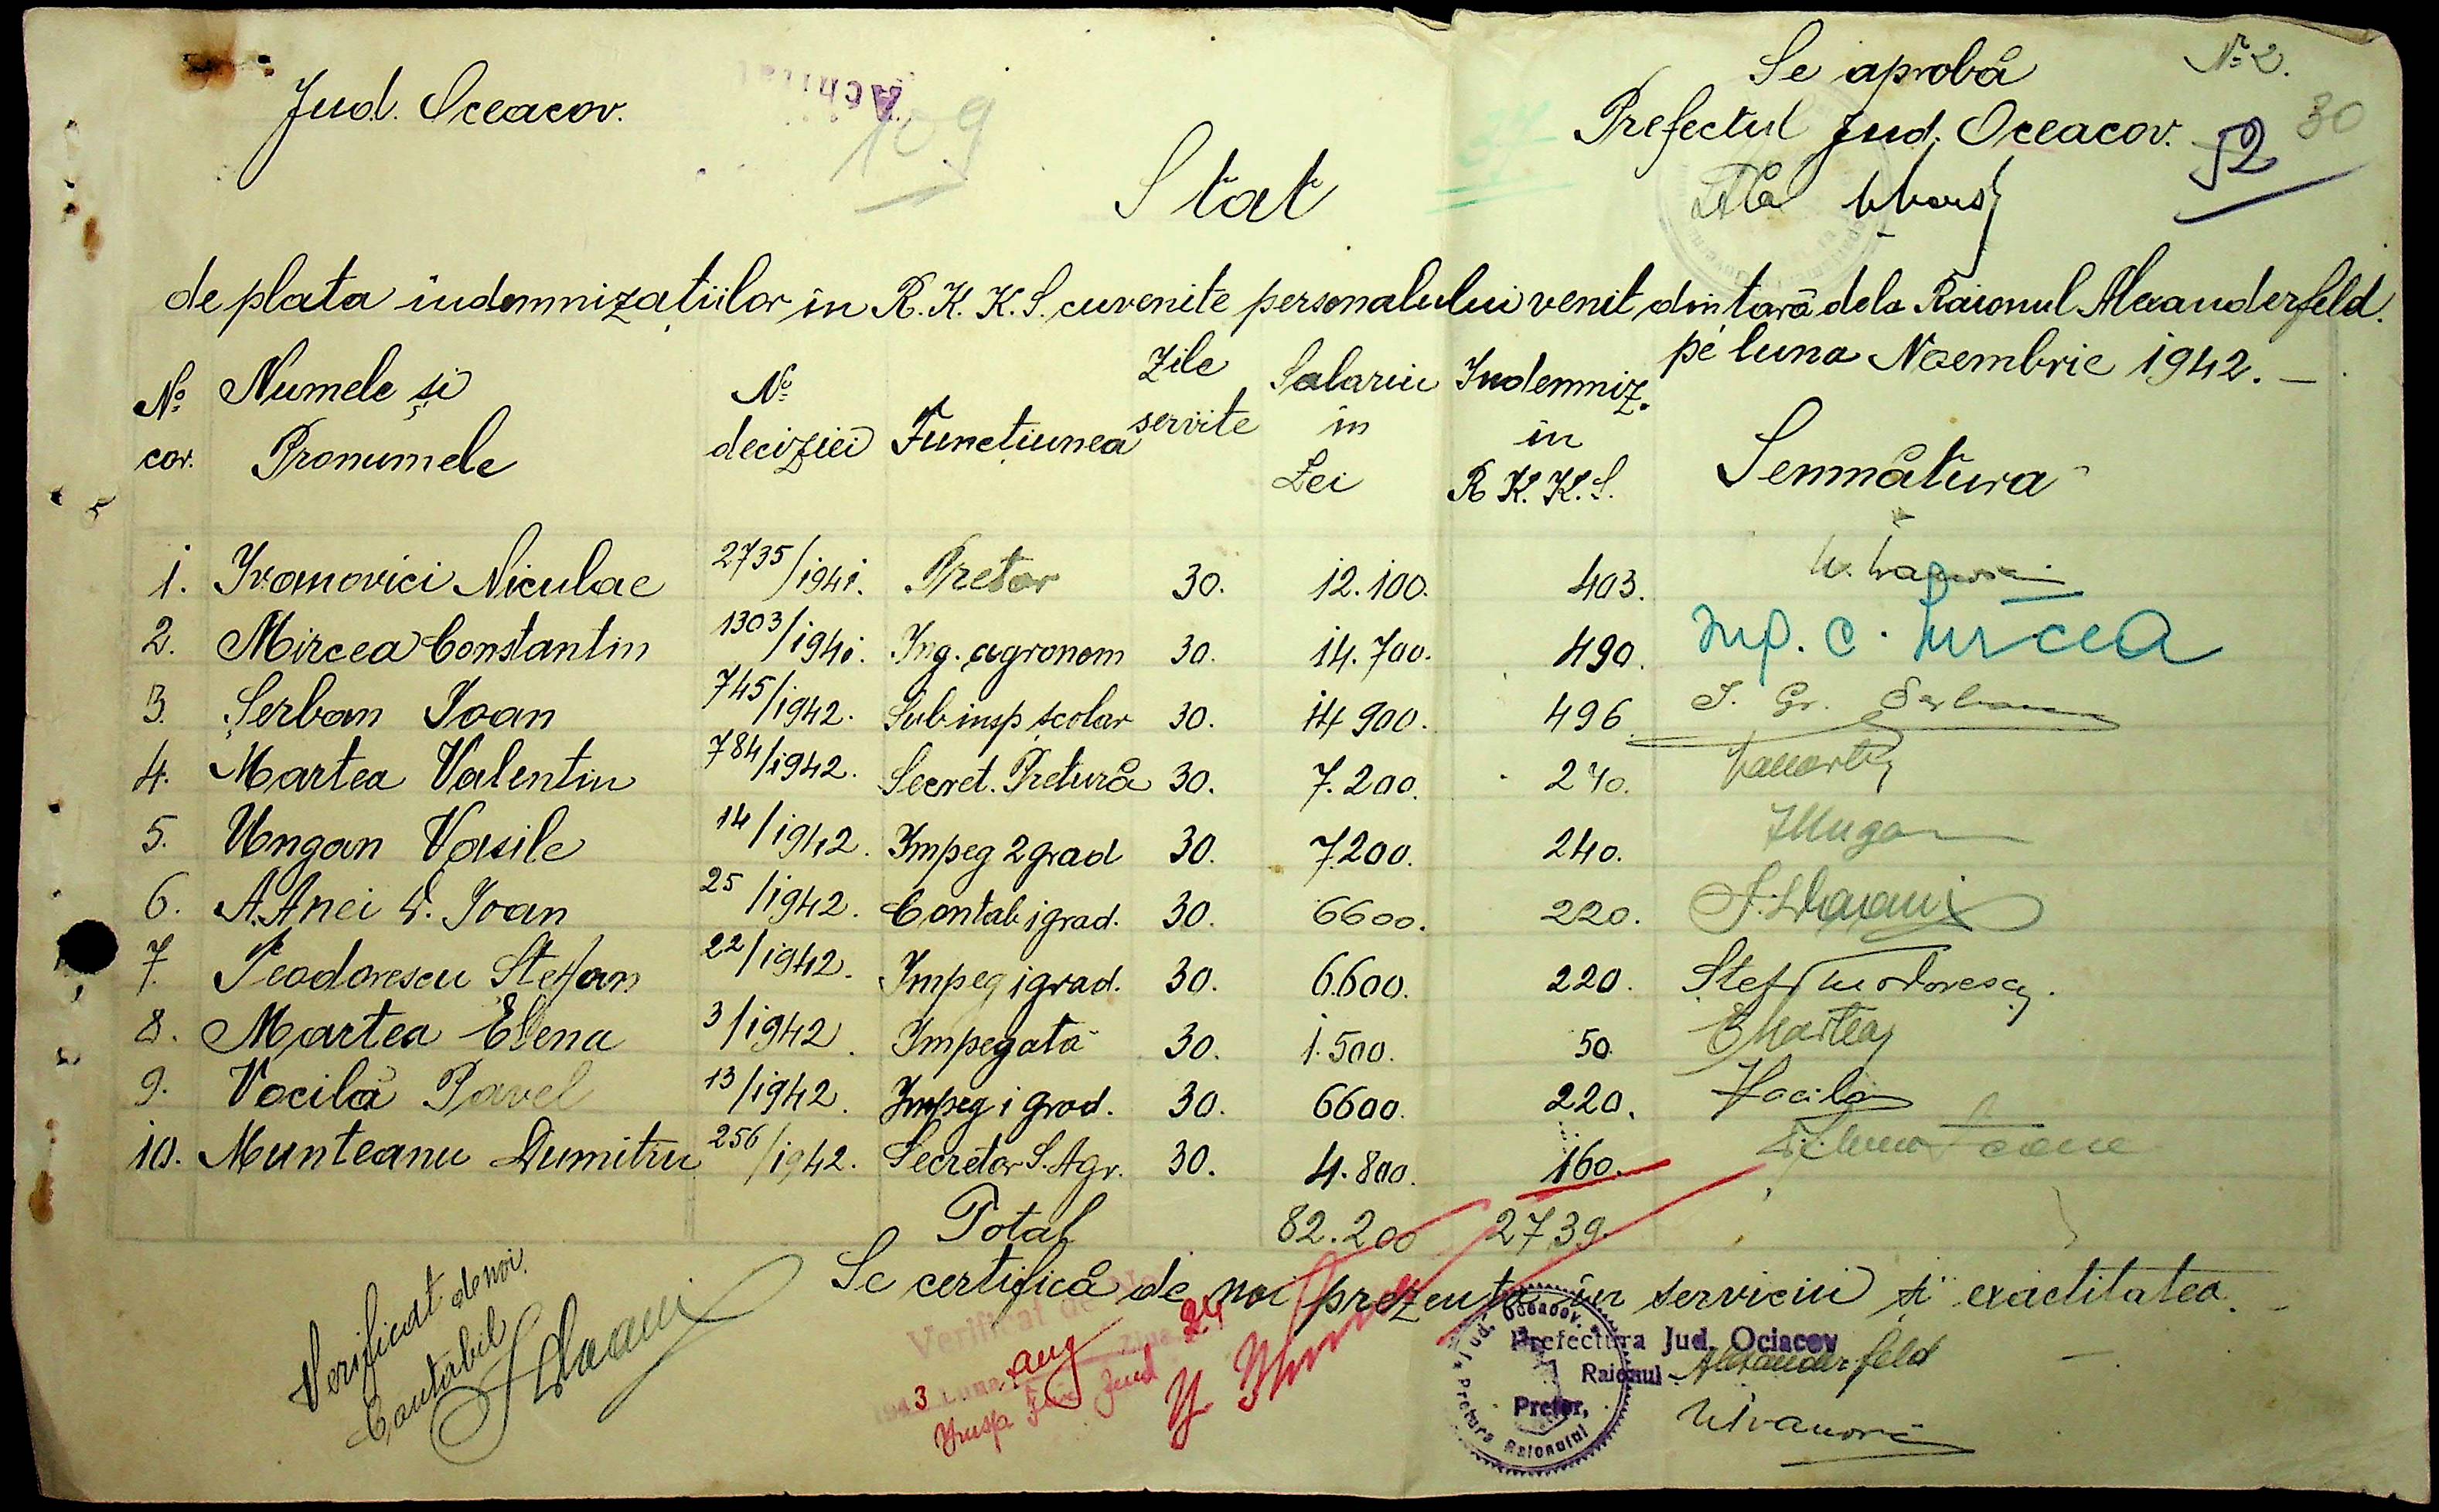 Nº 2.
30
Se aprobă
Jud. Oceacov.
Achitat
109
Prefectul Jud. Oceacov.
52
Stat
de plata indemnizațiilor în R.K.K.S. cuvenite personalului venit din țară dela Raionul Alexanderfeld.
pe luna Noembrie 1942. —
Nº cor. Numele și Pronumele Nº deciziei Funcțiunea Zile servite Salariu în Lei Indemniz. în R.K.K.S. Semnătura
1. Ivanovici Niculae 2735/1941. Pretor 30. 12.100. 403.
2. Mircea Constantin 1303/1941. Ing. agronom 30. 14.700. 490. Inp. C. Mircea
3. Șerban Ioan 745/1942. Sub insp școlar 30. 14 900. 496 I. Gr. Șerban
4. Martea Valentin 784/1942. Secret. Pretură 30. 7.200. 240.
5. Ungan Vasile 14/1942. Impeg 2 grad 30. 7.200. 240.
6. A.Anei D. Ioan 25/1942. Contab 1 grad. 30. 6600. 220.
7. Teodorescu Stefan 22/1942. Impeg 1 grad. 30. 6.600. 220. Stef Teodorescu.
8. Martea Elena 3/1942. Impegată 30. 1.500. 50. E Martea
9. Vacilă Pavel 13/1942. Impeg 1 grad. 30. 6600. 220. Vacila
10. Munteanu Dumitru 256/1942. Secretar S. Agr. 30. 4.800. 160.
Total 82.200 2739.
Se certifică de noi prezenta în serviciu și exactitatea. —
Verificat de noi.
Contabil
Verificat de Noi
Ziua 24
1943 Luna aug
Insp. Fin. Jud
Jud. Oceacov.
Pretura Raionului
Prefectura Jud. Ociacov
Raionul Alexanderfeld
Pretor,
N Ivanovici